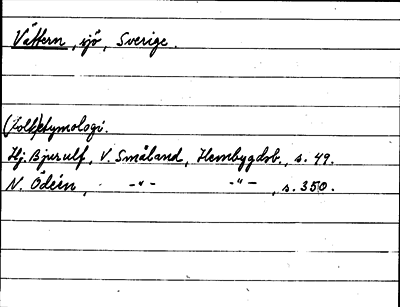 Vättern, sjö, Sverige.
(Folk)etymologi.
Hj. Bjerulf, V. Småland, Hembygdsb., s. 49.
N. Ödéen, -"- -"-, s. 350.